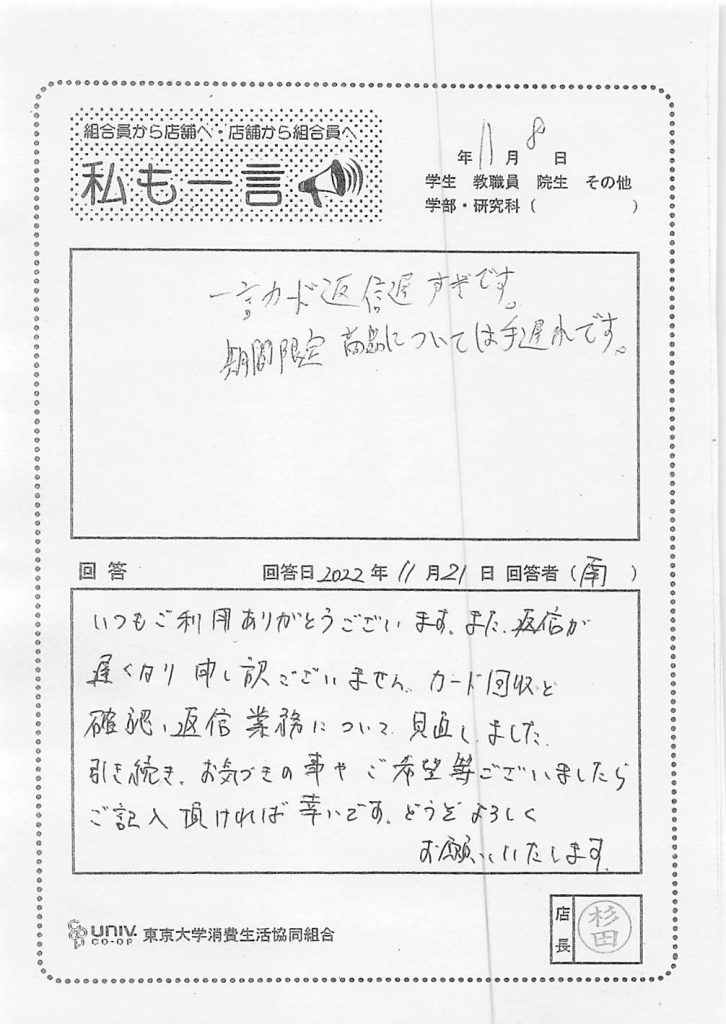 組合員から店舗へ・店舗から組合員へ
私も一言
年 11 月 8 日
学生 教職員 院生 その他
学部・研究科 ( )
一言カード返信遅すぎです。
期間限定商品については手遅れです。
回答 回答日 2022 年 11 月 21 日 回答者 (南)
いつもご利用ありがとうございます。また、返信が
遅くなり申し訳ございません。カード回収と
確認、返信業務について見直しました。
引き続き、お気づきの事やご希望等ございましたら
ご記入頂ければ幸いです。どうぞよろしく
お願いいたします。
UNIV. CO-OP 東京大学消費生活協同組合
店長 杉田